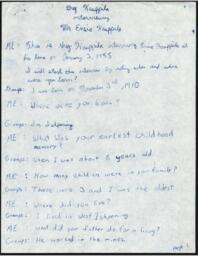 Greg Kauppila
interviewing
Mr Ensio Kauppila
ME: This is Greg Kauppila interviewing Ensio Kauppila at
his home on January 3, 1995
I will start the interview by asking when and where
were you born?
Gramps: I was born on November 3rd, 1910
ME: Where were you born?
Gramps: In Ishpeming
ME: What was your earliest childhood
memory?
Gramps: When I was about 6 years old.
ME: How many children were in your family?
Gramps: There were 3 and I was the oldest
ME: Where did you live?
Gramps: I lived in West Ishpeming
ME: What did your father do for a living?
Gramps: He worked in the mines.
page 1